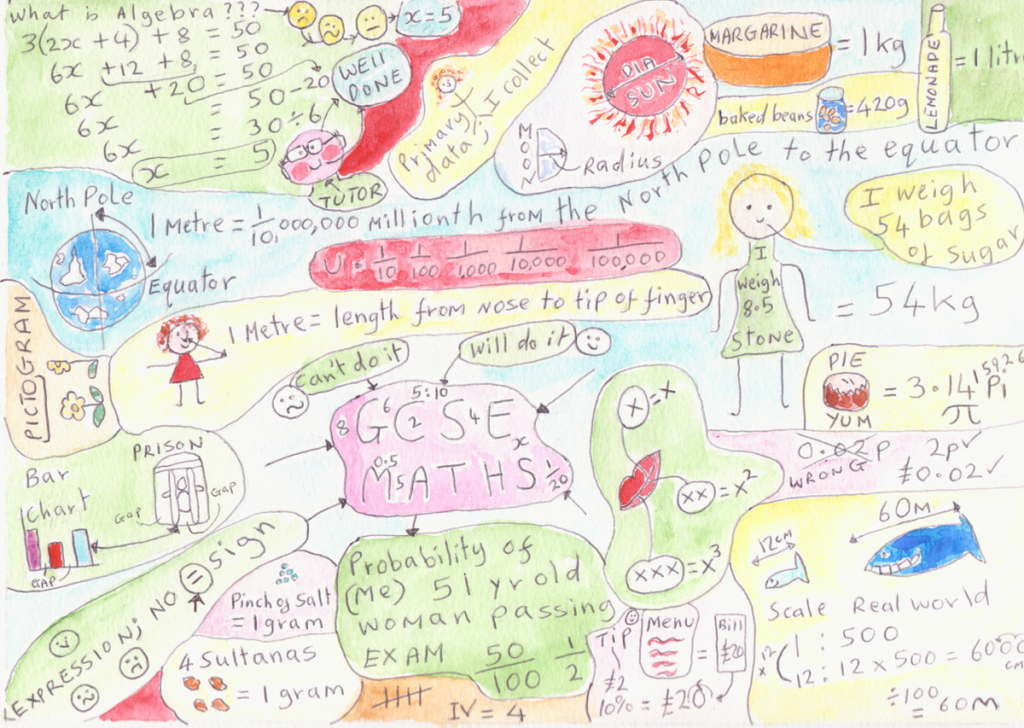 What is Algebra???
3(2x + 4) + 8 = 50
6x + 12 + 8 = 50
6x + 20 = 50
6x = 50 - 20
6x = 30 ÷ 6
x = 5
x = 5
WELL DONE
TUTOR
Primary data; I collect
DIA
SUN
MOON
Radius
MARGARINE = 1kg
baked beans = 420g
LEMONADE = 1 litre
North Pole
Equator
1 Metre = 1/10,000,000 millionth from the North Pole to the equator
U . 1/10 1/100 1/1,000 1/10,000 1/100,000
1 Metre = length from nose to tip of finger
I weigh 8.5 STONE
I weigh
54 bags
of sugar
= 54kg
PICTOGRAM
can't do it
will do it
8 6 2 5:10 4 x
GCSE
0.5 5 1/20
MATHS
PIE
YUM
= 3.1415926
Pi
π
x = x
xx = x²
xxx = x³
0.02p
WRONG
2p✓
£0.02 ✓
Bar
Chart
GAP
PRISON
GAP
GAP
EXPRESSION; NO = sign
Pinch of Salt
= 1 gram
4 Sultanas
= 1 gram
Probability of
(me) 51 yr old
woman passing
EXAM 50/100 1/2
IV = 4
TIP
£2
10% = £20
Menu
=
Bill
£20
12cm
60M
Scale Real world
1 : 500
x12
12 : 12 x 500 = 6000 cm
÷100
= 60m